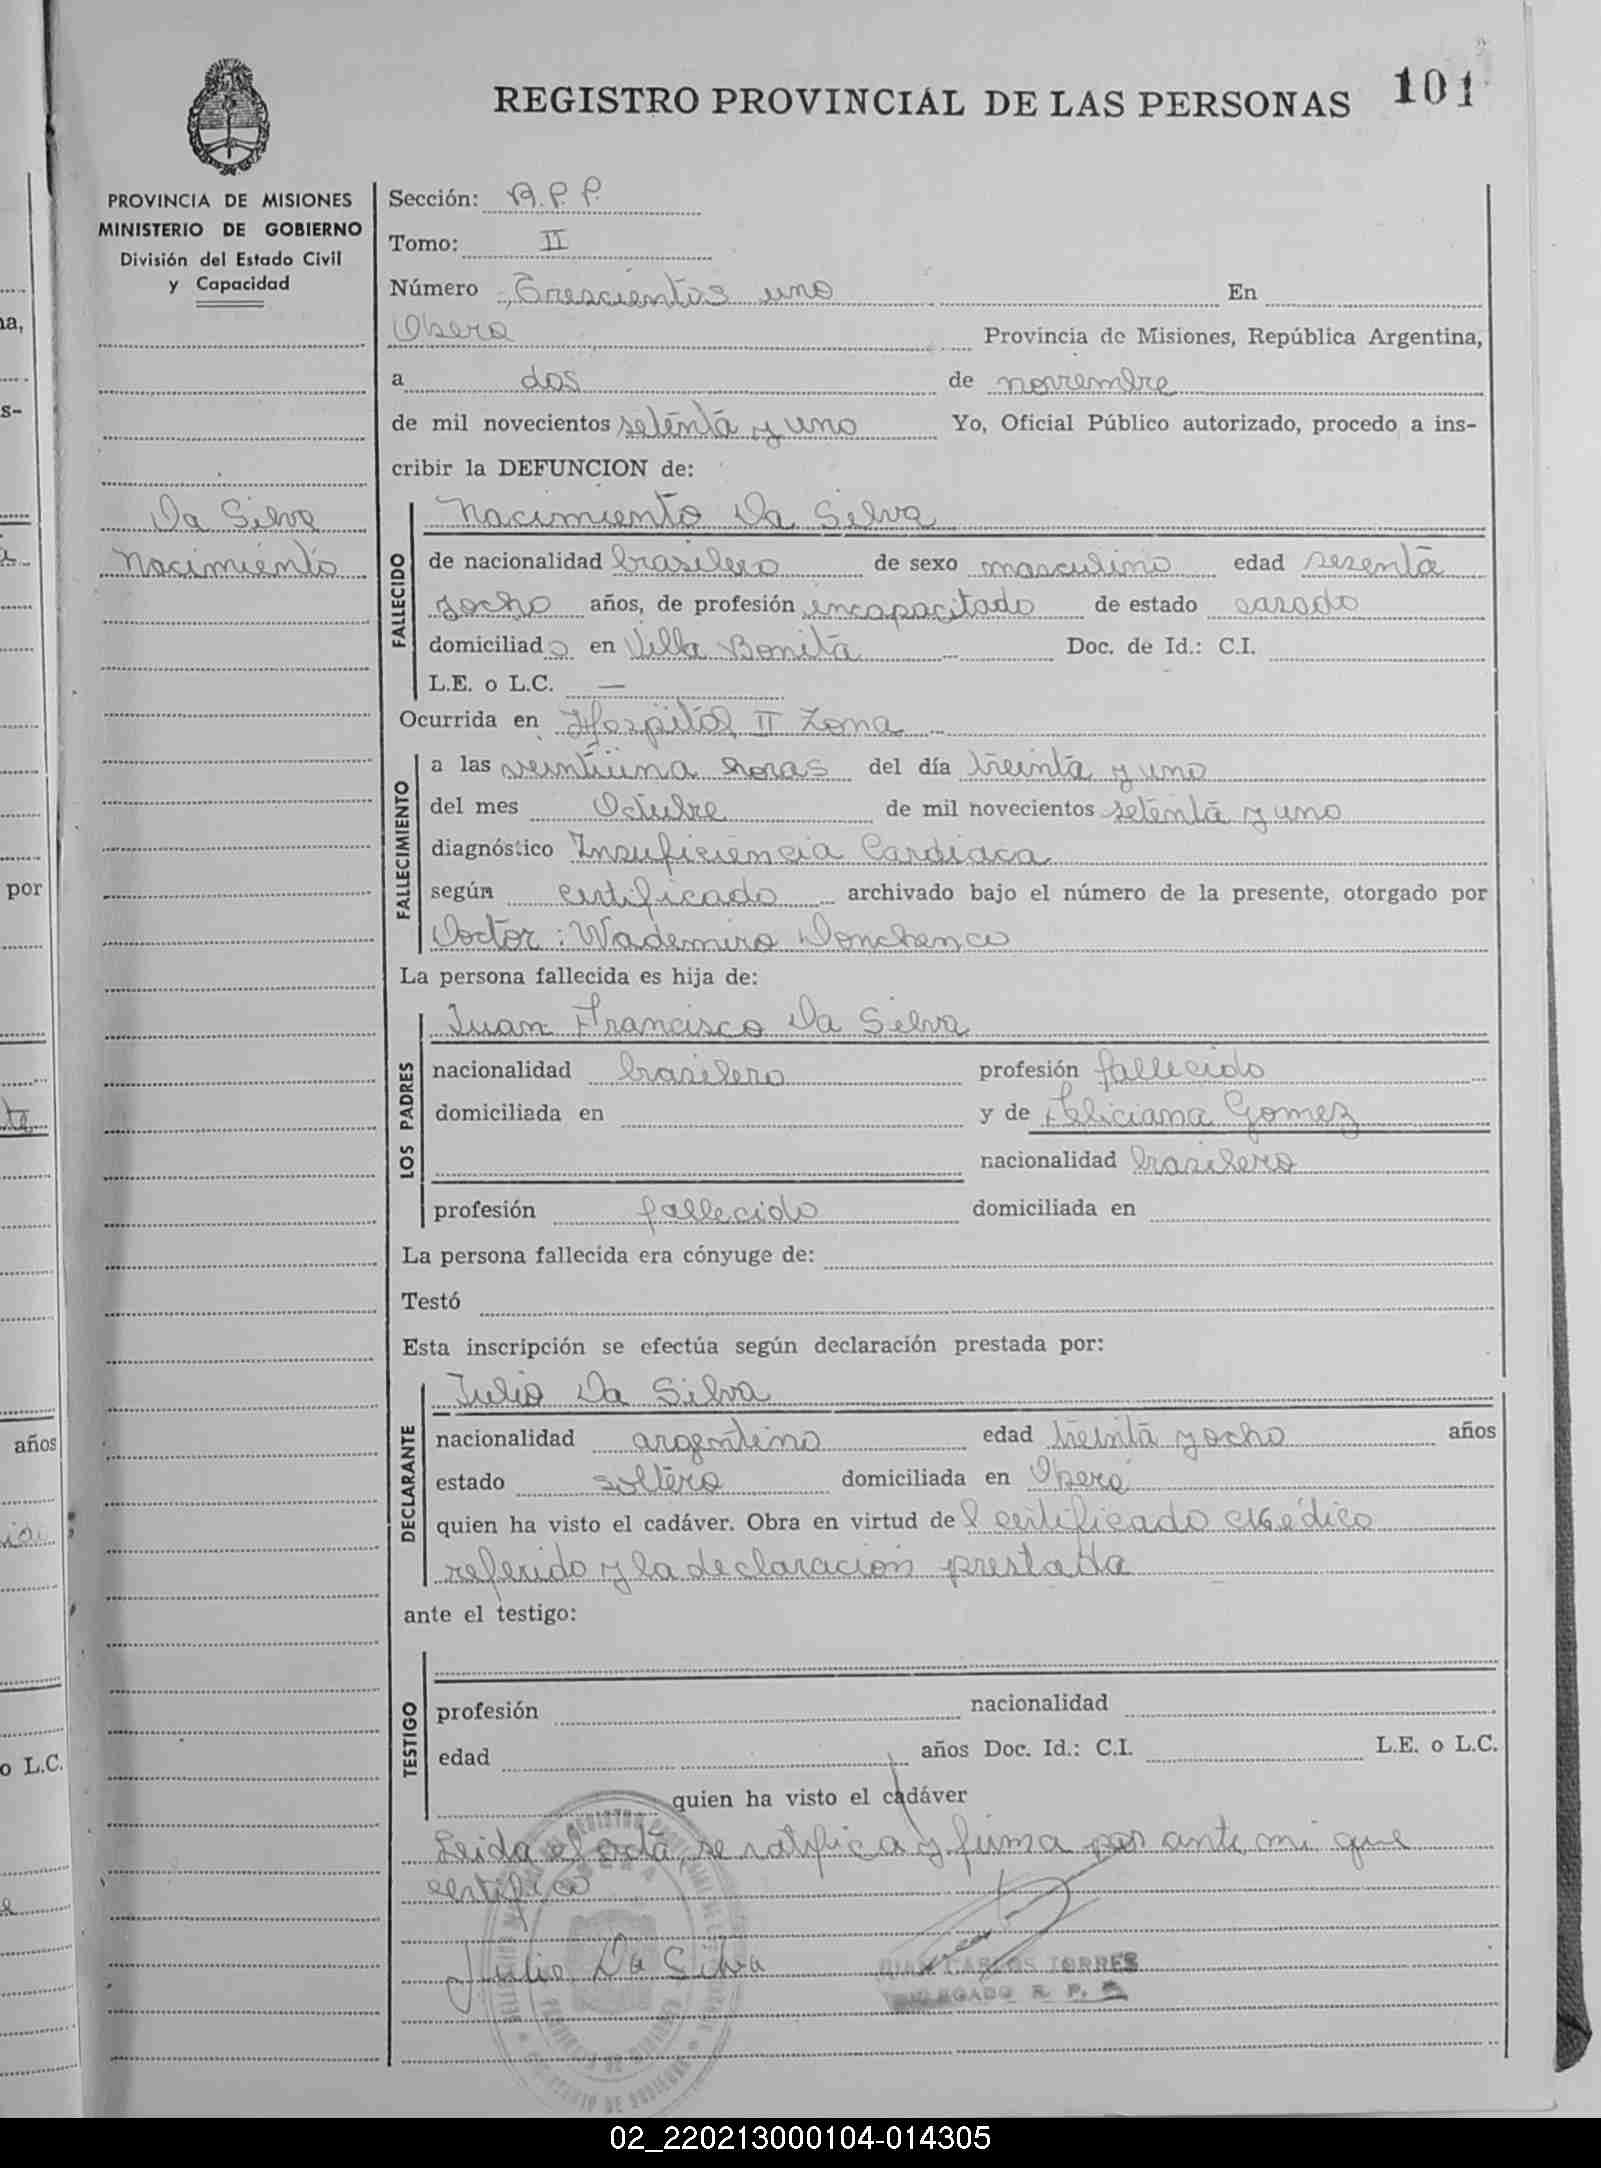 REGISTRO PROVINCIAL DE LAS PERSONAS 101
PROVINCIA DE MISIONES
MINISTERIO DE GOBIERNO
División del Estado Civil
y Capacidad
Da Silva
Nacimiento
Sección:
Tomo: II
Número Trescientos uno En
Obera Provincia de Misiones, República Argentina,
a dos de noviembre
de mil novecientos setenta y uno Yo, Oficial Público autorizado, procedo a ins-
cribir la DEFUNCION de:
FALLECIDO
Nacimiento Da Silva
de nacionalidad brasilero de sexo masculino edad sesenta
yocho años, de profesión incapacitado de estado casado
domiciliado en Villa Bonita Doc. de Id.: C.I.
L.E. o L.C. —
Ocurrida en Hospital II Zona
FALLECIMIENTO
a las veintiuna horas del día treinta y uno
del mes Octubre de mil novecientos setenta y uno
diagnóstico Insuficiencia Cardiaca
según certificado archivado bajo el número de la presente, otorgado por
Doctor: Wademiro
La persona fallecida es hija de:
LOS PADRES
Juan Francisco Da Silva
nacionalidad brasilero profesión fallecido
domiciliada en y de Feliciana Gomez
nacionalidad brasilero
profesión fallecido domiciliada en
La persona fallecida era cónyuge de:
Testó
Esta inscripción se efectúa según declaración prestada por:
DECLARANTE
Julio Da Silva
nacionalidad argentino edad treinta yocho años
estado soltero domiciliada en Obera
quien ha visto el cadáver. Obra en virtud del certificado médico
referido y la declaración prestada
ante el testigo:
TESTIGO
profesión nacionalidad
edad años Doc. Id.: C.I. L.E. o L.C.
quien ha visto el cadáver
Leida el acta, se ratifica y firma por ante mi que
certifico
Julio Da Silva
JUAN CARLOS TORRES
DELEGADO R. P. P.
02_220213000104-014305